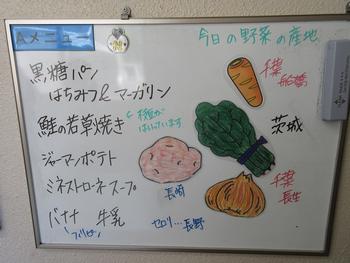 Aメニュー
今日の野菜の産地
黒糖パン
はちみつ&マーガリン
鮭の若草焼き
←種が
はいっています
ジャーマンポテト
ミネストローネスープ
バナナ 牛乳
フィリピン
千葉
船橋
茨城
長崎
千葉
長生
セロリ…長野